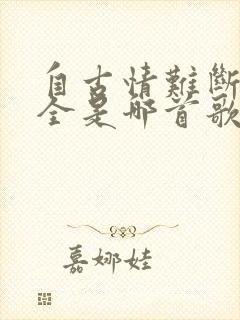 自古情難斷
全是哪首歌
嘉娜娃